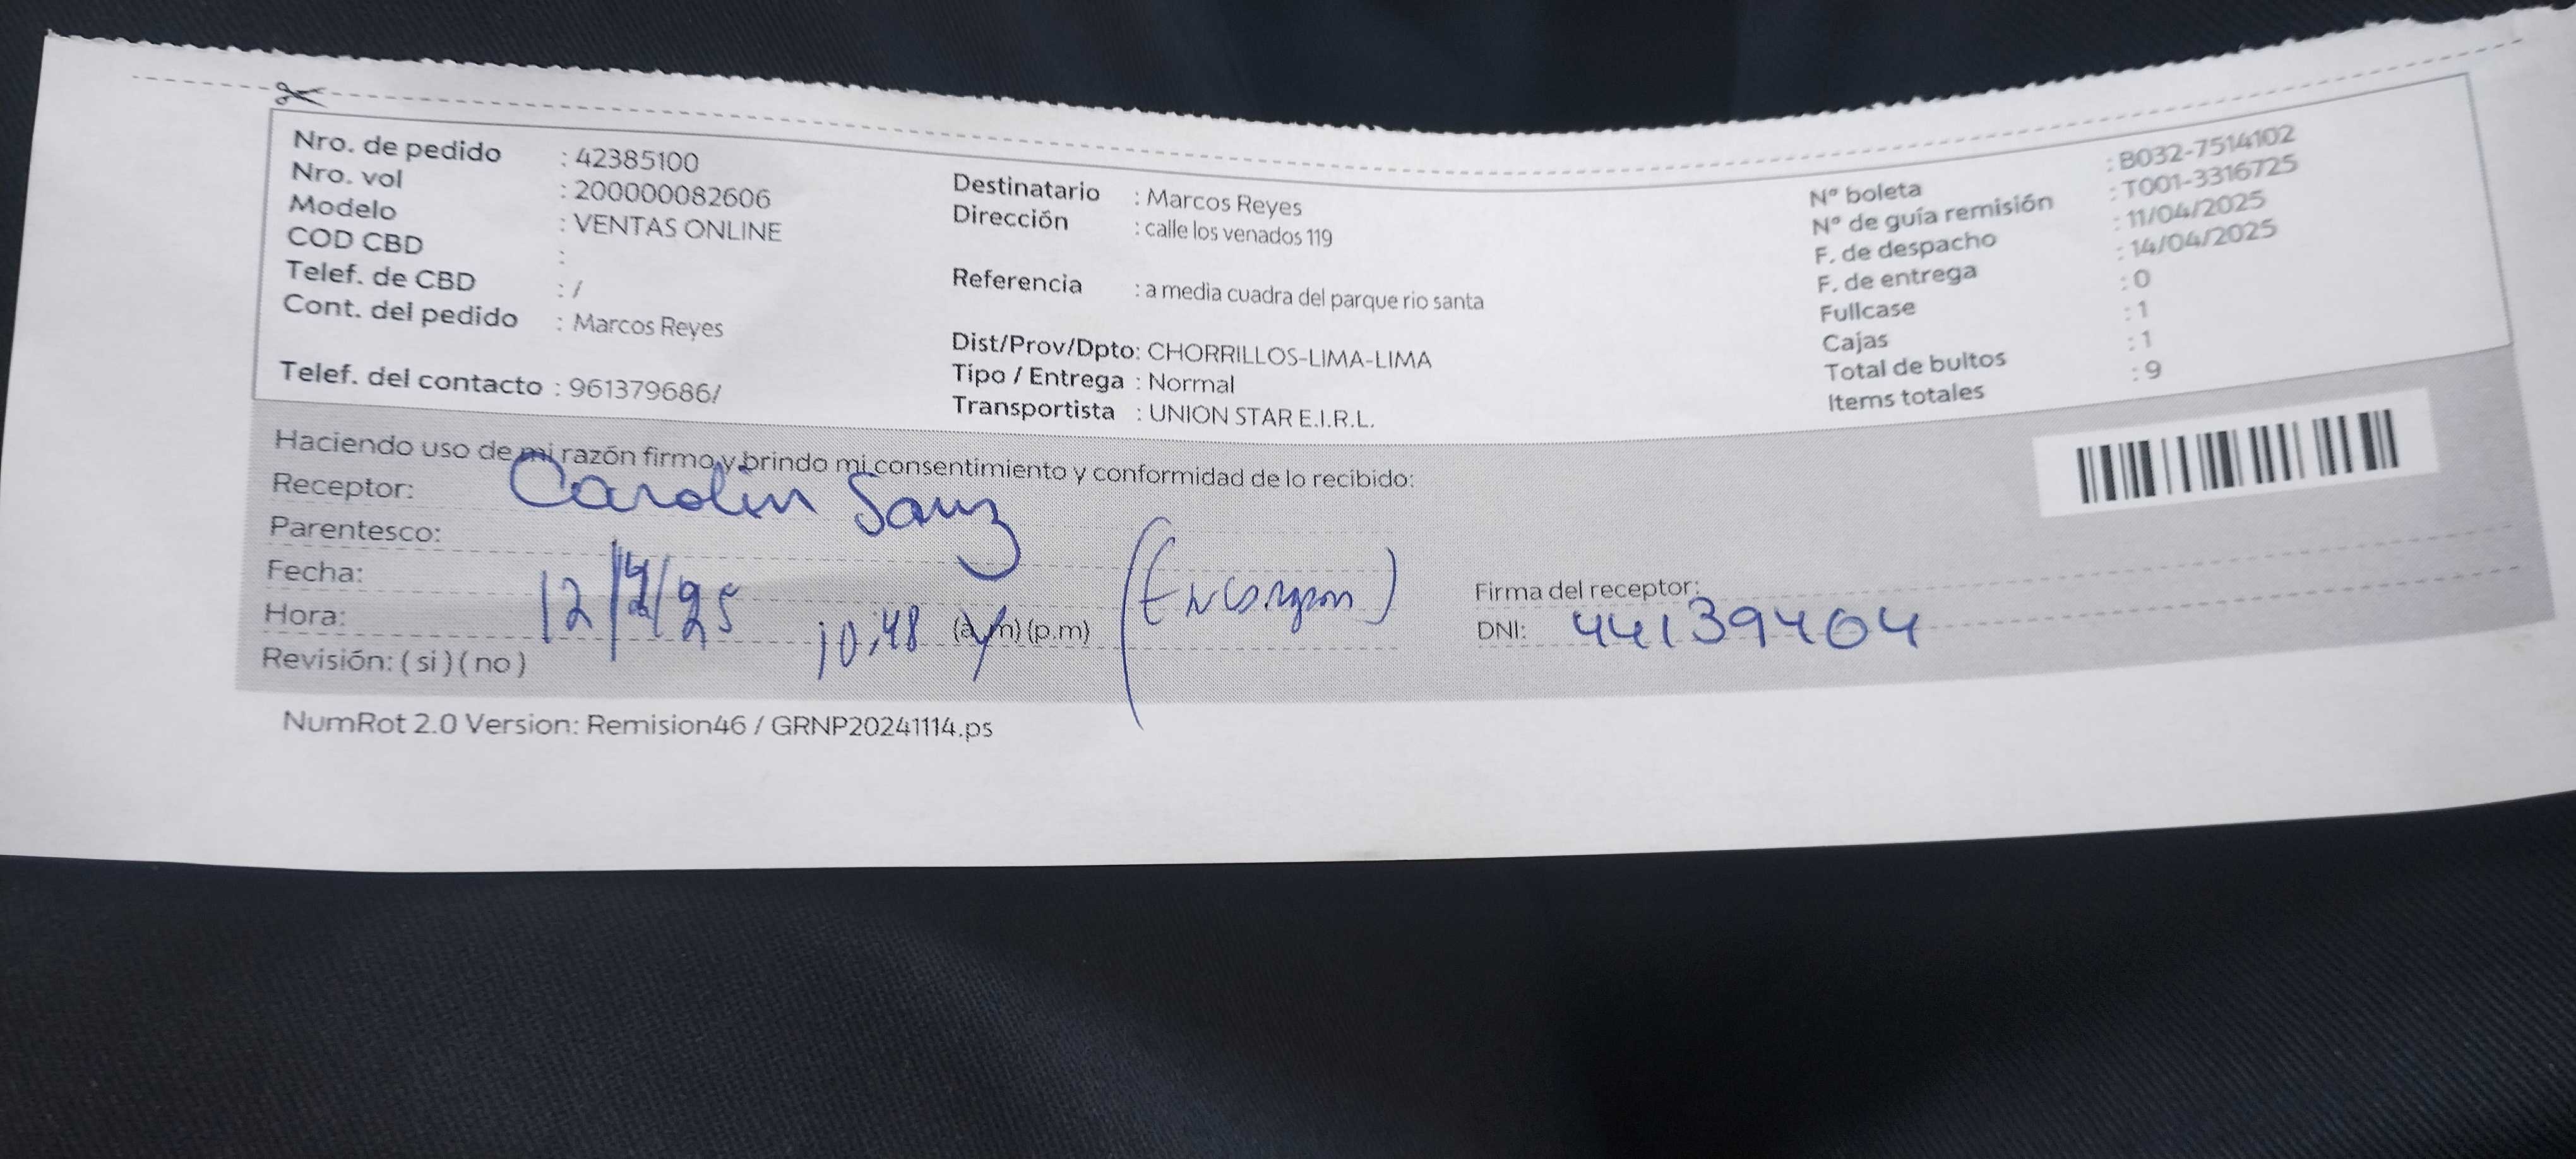 Nro. de pedido : 42385100
Nro. vol : 200000082606
Modelo : VENTAS ONLINE
COD CBD :
Telef. de CBD : /
Cont. del pedido : Marcos Reyes
Telef. del contacto : 961379686/
Destinatario : Marcos Reyes
Dirección : calle los venados 119
Referencia : a media cuadra del parque rio santa
Dist/Prov/Dpto: CHORRILLOS-LIMA-LIMA
Tipo / Entrega : Normal
Transportista : UNION STAR E.I.R.L.
Nº boleta : B032-7514102
Nº de guía remisión : T001-3316725
F. de despacho : 11/04/2025
F. de entrega : 14/04/2025
Fullcase : 0
Cajas : 1
Total de bultos : 1
Items totales : 9
Haciendo uso de mi razón firmo y brindo mi consentimiento y conformidad de lo recibido:
Receptor: Carolin
Parentesco:
Fecha: 12/4/25
Hora: 10,48 (a.m) (p.m)
Revisión: ( si ) ( no )
Firma del receptor:
DNI: 44139404
NumRot 2.0 Version: Remision46 / GRNP20241114.ps